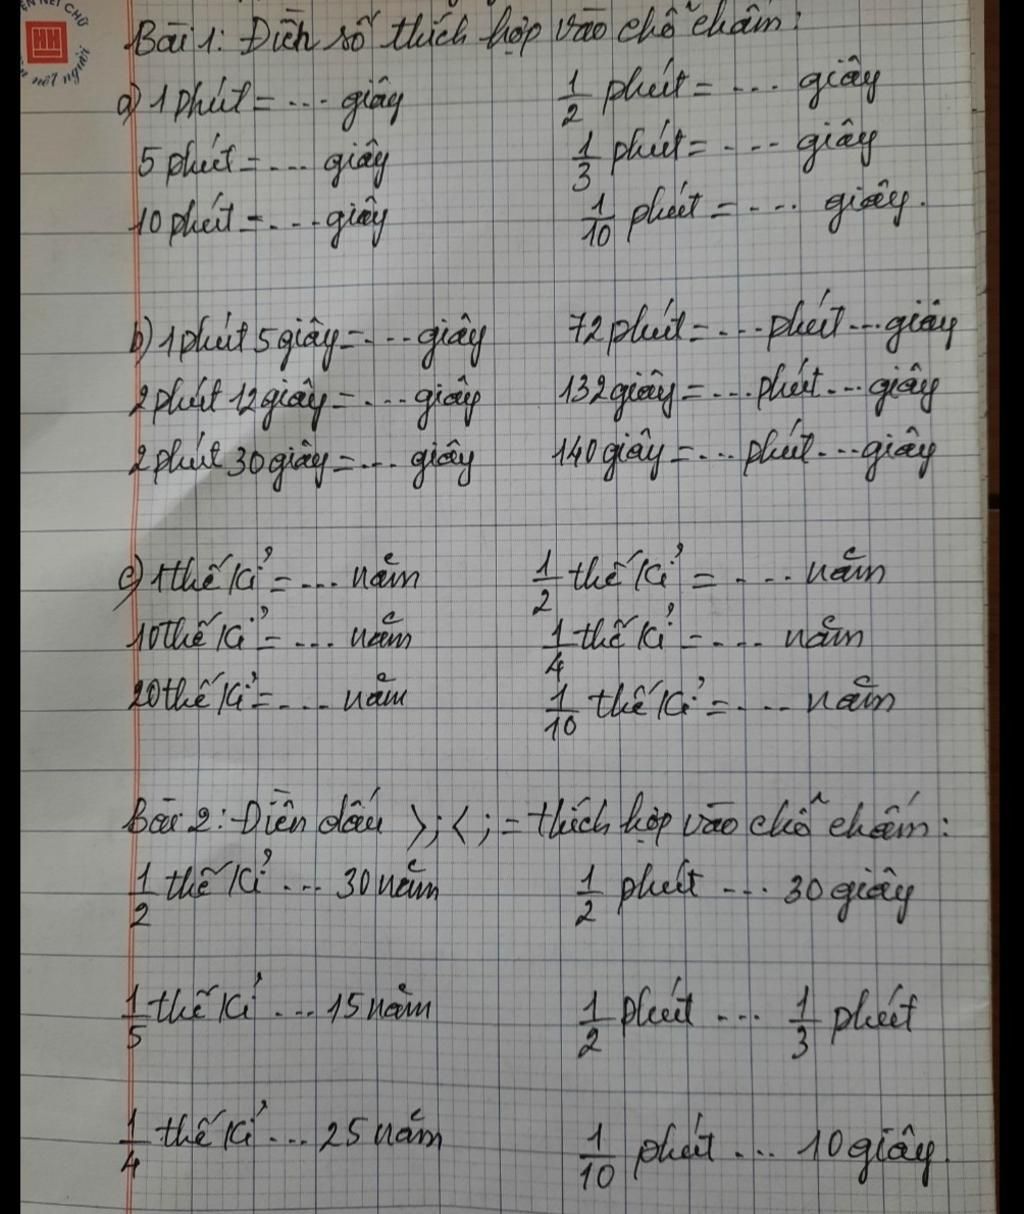 Bài 1: Điền số thích hợp vào chỗ chấm:
a) 1 phút = ... giây 1/2 phút = ... giây
5 phút = ... giây 1/3 phút = ... giây
10 phút = ... giây 1/10 phút = ... giây.
b) 1 phút 5 giây = ... giây 72 phút = ... phút ... giây
2 phút 12 giây = ... giây 132 giây = ... phút ... giây
2 phút 30 giây = ... giây 140 giây = ... phút ... giây
c) 1 thế kỉ = ... năm 1/2 thế kỉ = ... năm
10 thế kỉ = ... năm 1/4 thế kỉ = ... năm
20 thế kỉ = ... năm 1/10 thế kỉ = ... năm
Bài 2: Điền dấu >; <; = thích hợp vào chỗ chấm:
1/2 thế kỉ ... 30 năm 1/2 phút ... 30 giây
1/5 thế kỉ ... 15 năm 1/2 phút ... 1/3 phút
1/4 thế kỉ ... 25 năm 1/10 phút ... 10 giây.
NÉT CHỮ
nết người